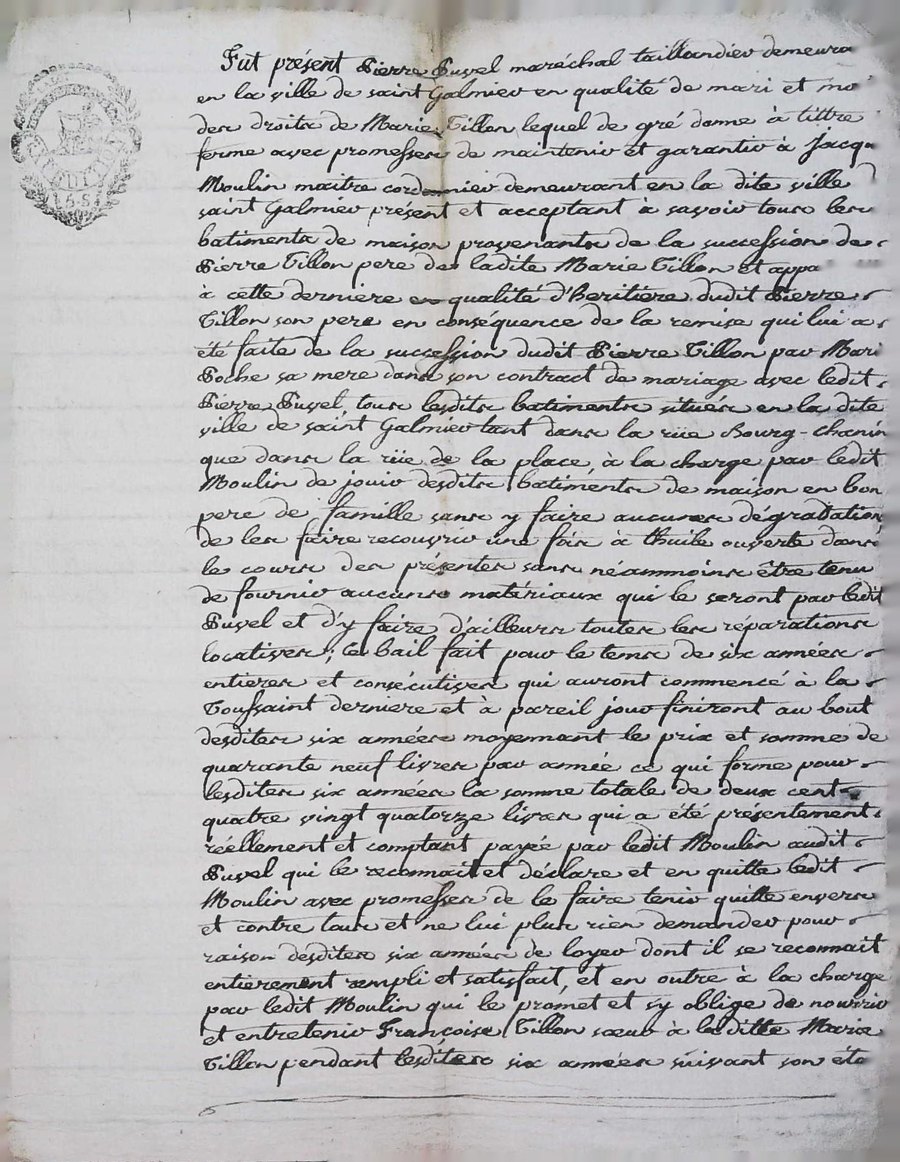 Fut présent Pierre Suvel maréchal taillandier demeura
en la ville de saint Galmier en qualité de mari et
des droits de Marie Tillon lequel de gré donne à tittre
ferme avec promesses de maintenir et garantir à Jacq
Moulin maitre cordonnier demeurant en la dite ville
saint Galmier présent et acceptant à savoir tous les
batiments de maison provenants de la succession de
Pierre Tillon pere de ladite Marie Tillon et appa
à cette derniere en qualité d'heritière dudit Pierre
Tillon son pere en conséquence de la remise qui lui a
été faite de la succession dudit Pierre Tillon par Mari
Poche sa mere dans son contract de mariage avec ledit
Pierre Suvel tous lesdits batiments situés en la dite
ville de saint Galmier tant dans la rüe Bourg-chanin
que dans la rüe de la place, à la charge par ledit
Moulin de jouir desdits batiments de maison en bon
pere de famille sans y faire aucunes dégradations
de les faire recouvrir une fois à thuile ouverte dans
le cours des présentes sans néammoins être tenu
de fournir aucuns matériaux qui le seront par ledit
Suvel et d'y faire d'ailleurs toutes les réparations
locatives; ce bail fait pour le tems de six années
entieres et consécutives qui auront commencé à la
Toussaint derniere et à pareil jour finiront au bout
desdites six années moyennant le prix et somme de
quarante neuf livres par année ce qui forme pour
lesdites six années la somme totale de deux cent
quatre vingt quatorze livres qui a été présentement
réellement et comptant payée par ledit Moulin audit
Suvel qui le reconnait et déclare et en quitte ledit
Moulin avec promesses de le faire tenir quitte envers
et contre tous et ne lui plus rien demander pour
raison desdites six années de loyer dont il se reconnait
entierement rempli et satisfait, et en outre à la charge
par ledit Moulin qui le promet et s'y oblige de nourrir
et entretenir Françoise Tillon sœur à laditte Marie
Tillon pendant lesdites six années suivant son éta